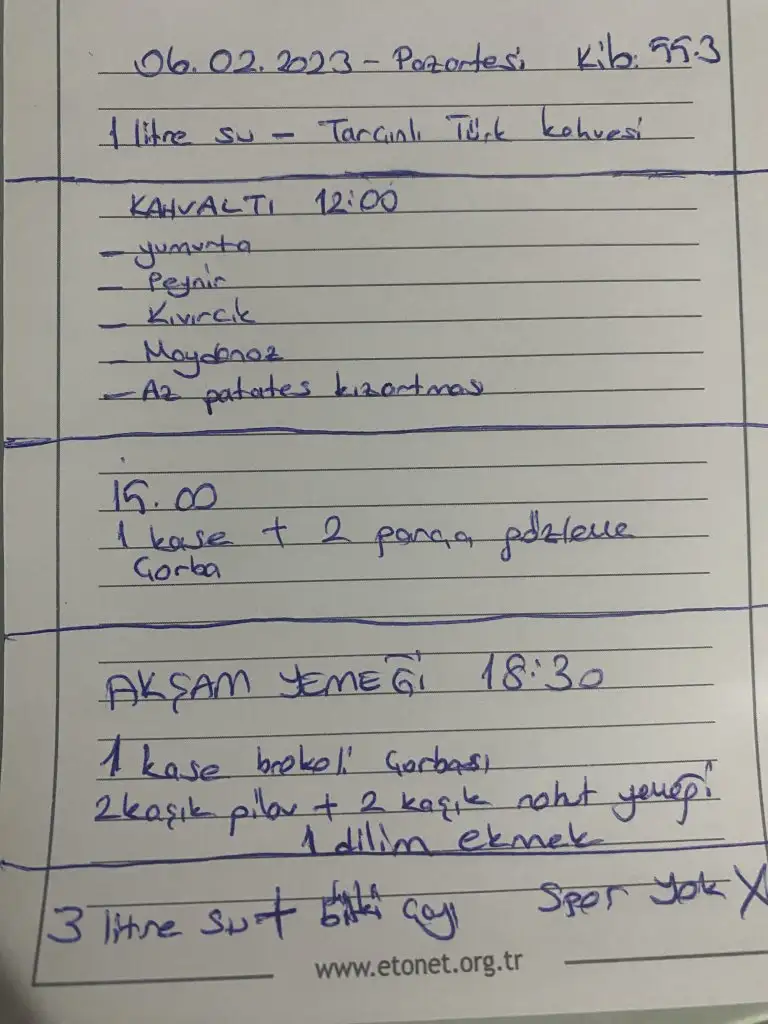 06.02.2023 - Pazartesi Kib: 55.3
1 litre su - Tarçınlı Türk kahvesi
KAHVALTI 12:00
- yumurta
- Peynir
- Kıvırcık
- Maydanoz
- Az patates kızartması
15.00
1 kase + 2 parça gözleme
Çorba
AKŞAM YEMEĞİ 18:30
1 kase brokoli çorbası
2 kaşık pilav + 2 kaşık nohut yemeği
1 dilim ekmek
3 litre su + bitki çayı Spor Yok X
www.etonet.org.tr